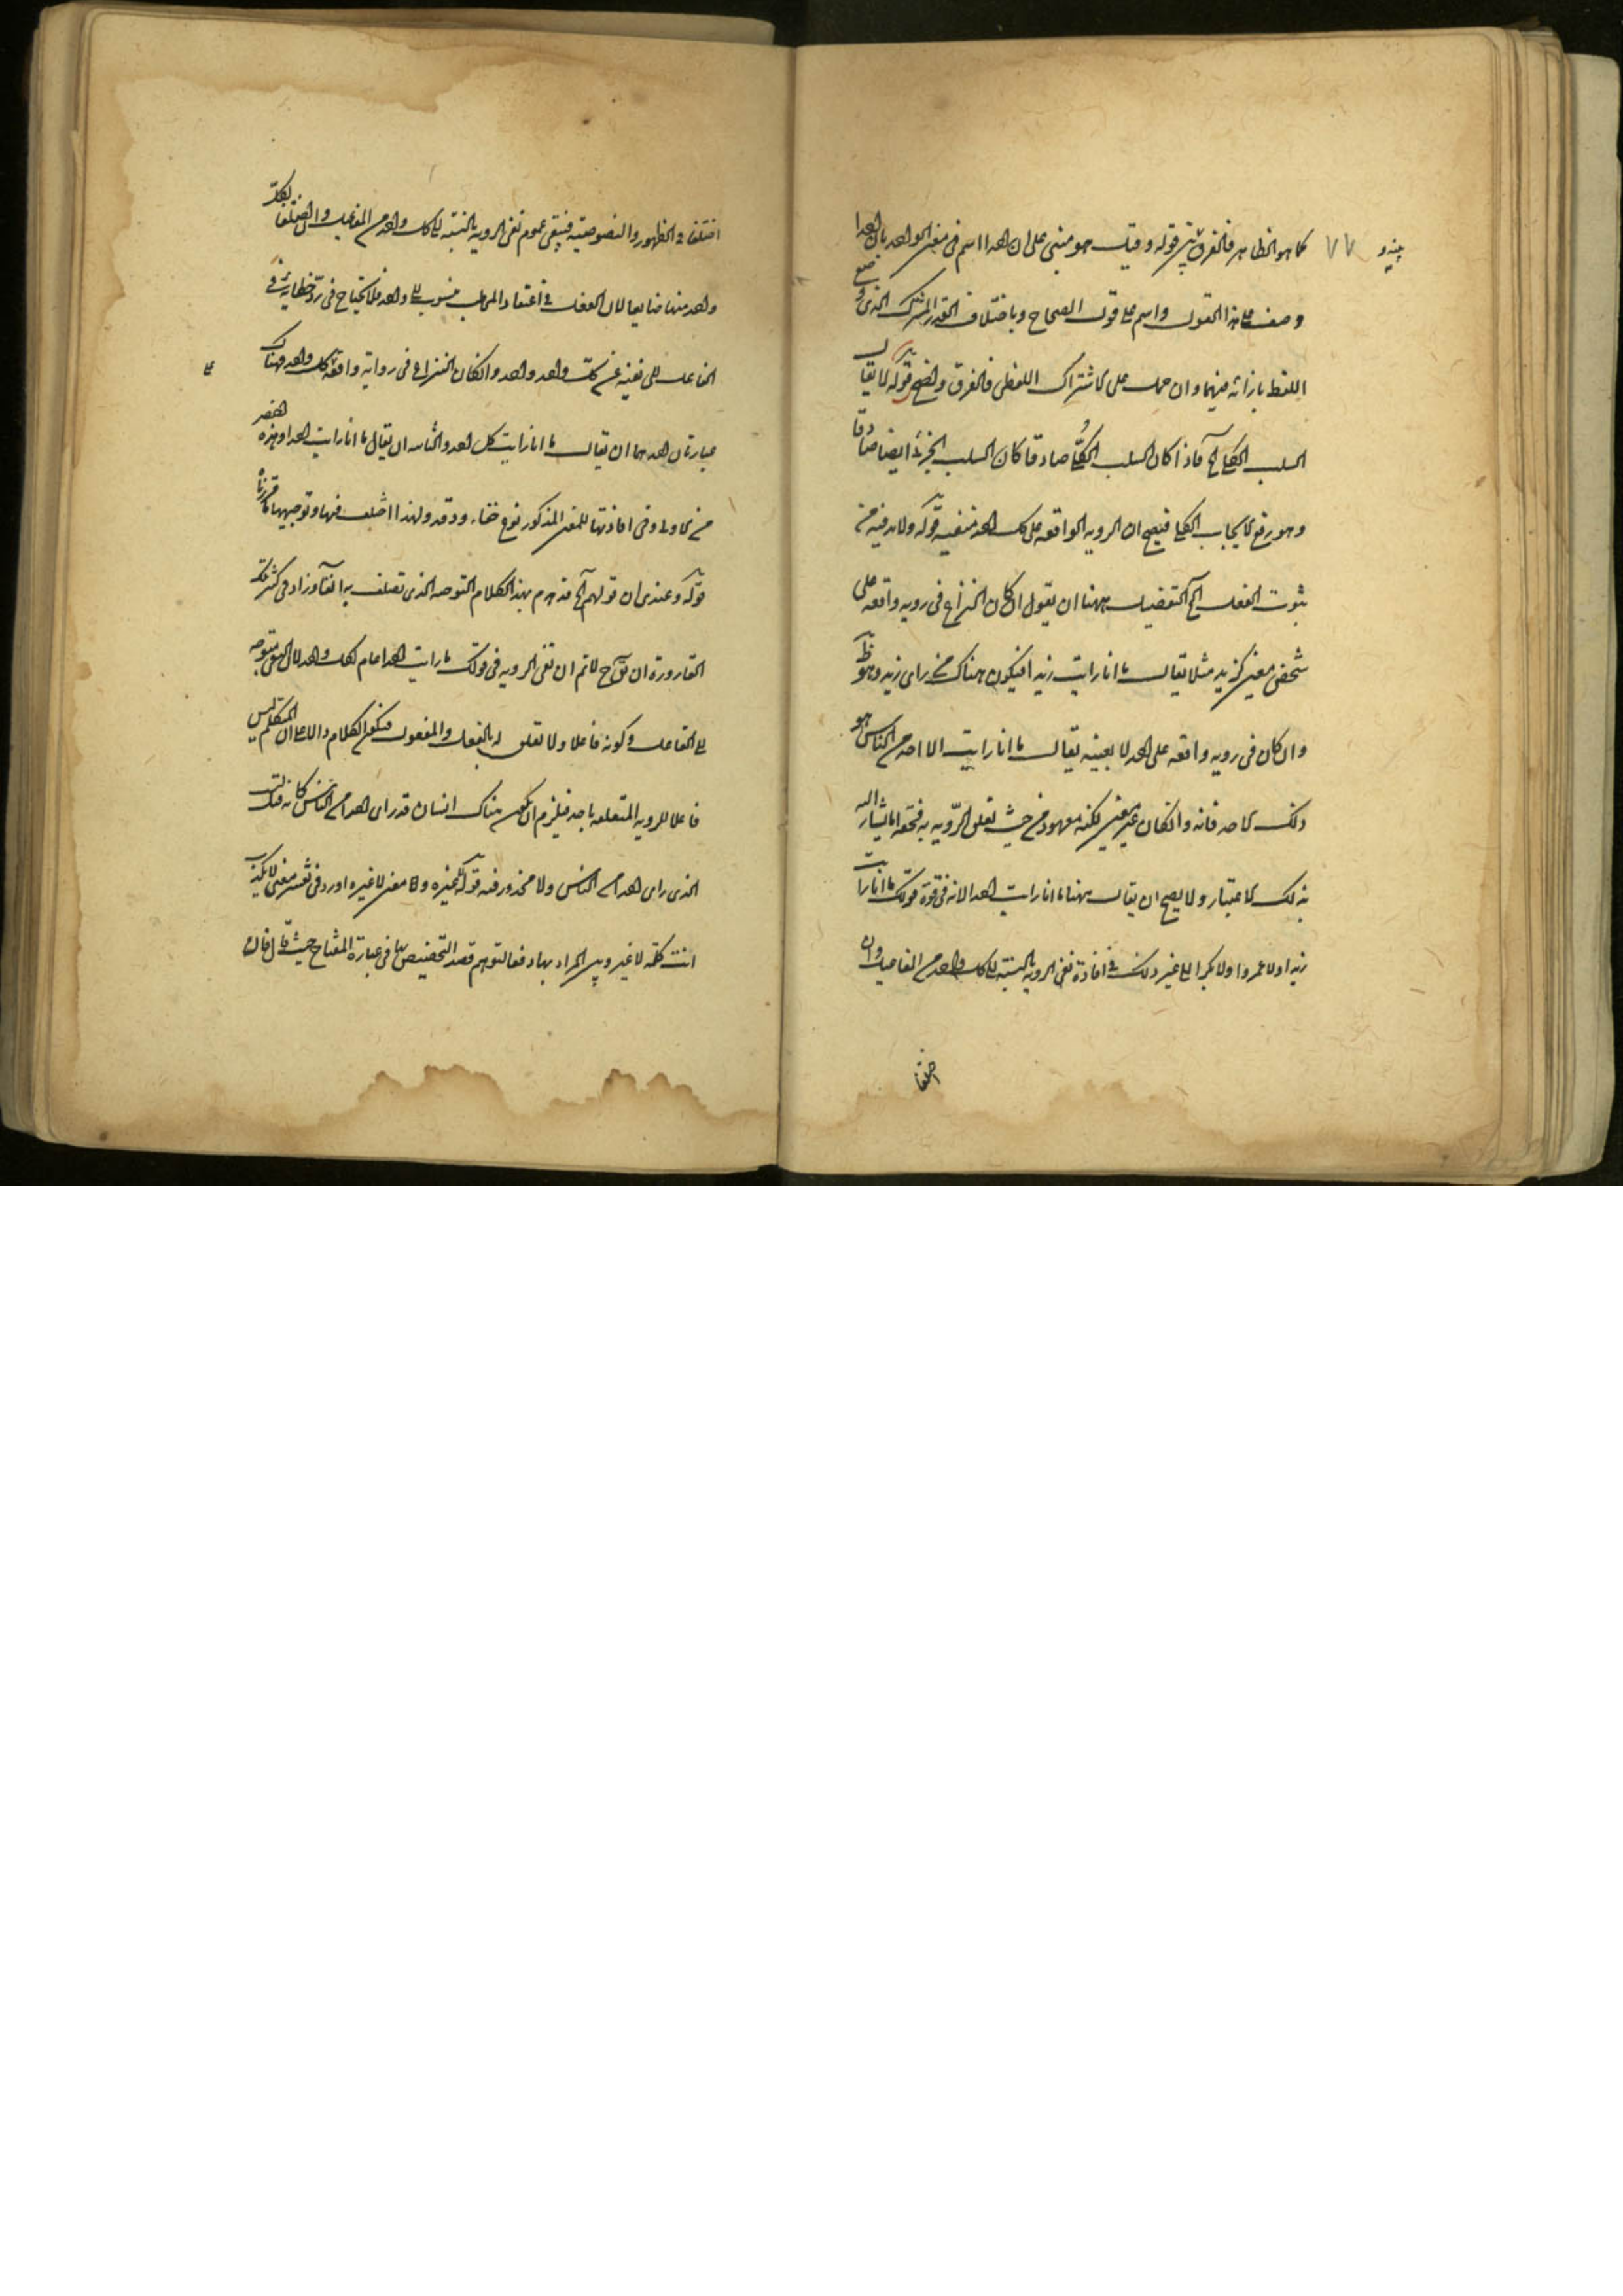 كما هو الظاهر فالفرق بين قوله وقيل هو مبني على ان احدا اسم في معنى الواحد بان احدا
وصف على هذا القول واسم على قول الصحاح وباختلاف القدر المشترك الذي وضع
اللفظ بازائه فيهما وان حمل على الاشتراك اللفظي فالفرق واضح قوله لا يقال
السلب الكلي الخ فاذا كان السلب الكلي صادقا كان السلب الجزئي ايضا صادقا
وهو رفع الايجاب الكلي فيصح ان الرويه الواقعه على كل احد منفيه قوله ولا بد فيه من
ثبوت الفعل الخ التفصيل ههنا ان يقول ان كان النزاع في رويه واقعه على
شخص معين كزيد مثلا يقال ما انا رايت زيدا فيكون هناك من راى زيدا وهو ظ
وان كان في رويه واقعه على احد لا بعينه يقال ما انا رايت الا احد من الناس هو
ذلك الاحد فانه وان كان غير معين لكنه معهود من حيث تعلق الرويه به فحقه ان يشار اليه
بذلك الاعتبار ولا يصح ان يقال ههنا ما انا رايت احدا لانه في قوة قولك ما انا رايت
زيدا ولا عمروا ولا بكرا الى غير ذلك في افادة نفي الرويه بالنسبه الى كل واحد من المفاعيل وان
اختلفا
اختلفا في الظهور والنصوصيه فيبقى عموم نفي الرويه بالنسبه الى كل واحد من المفاعيل
واحد منها ضايعا لان الفعل في اعتقاد المخاطب منسوب الى واحد فلا يحتاج في رد خطايه في
الفاعل الى نفيه عن كل واحد واحد وان كان النزاع في رواية واقعة كل واحد هناك
عبارتان احدهما ان يقال ما انا رايت كل احد والثانيه ان يقال ما انا رايت احدا وهذه اخصر
من الاولى وفي افادتها للمعنى المذكور نوع خفاء ودقه ولهذا اختلف فيها وتوجيهها ما قررناه
قوله وعندي ان قولهم الخ قد هدم بهذا الكلام التوجيه الذي تصلف به انفا وزاد في
القاروره ان نق لا نم ان نفي الرويه في قولك ما رايت احدا عام لكل واحد لان النفي متوجه
الى الفاعل وكونه فاعلا ولا تعلق له بالفعل والمفعول فيكون الكلام دالا على ان المتكلم ليس
فاعلا للرويه المتعلقه باحد فيلزم ان يكون هناك انسان قد راى احدا من الناس كانه قيل لست
الذي راى احدا من الناس ولا محذور فيه قوله لا غيره و اما معنى لا غيره اورد في تفسير معنى
انت كلمة لا غير وبين المراد بها دفعا لتوهم قصد التخصيص بها في عبارة المفتاح حيث قال فان